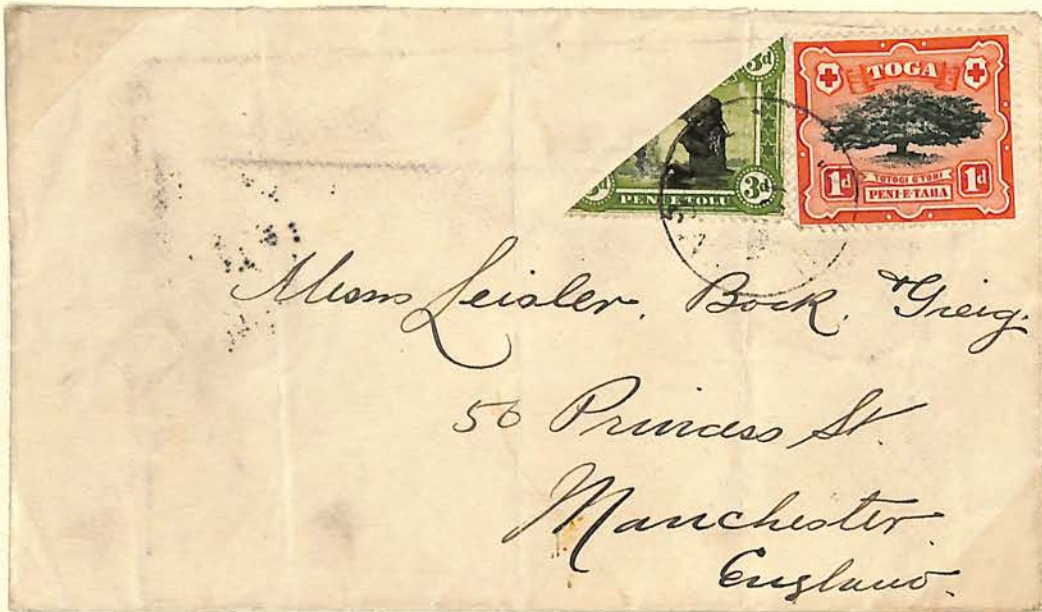 3d
3d 3d
PENI-E-TOLU
TOGA
TOTOGI O TOHI
1d PENI-E-TAHA 1d
Messrs Leisler, Bock, & Greig.
50 Princess St.
Manchester.
England.